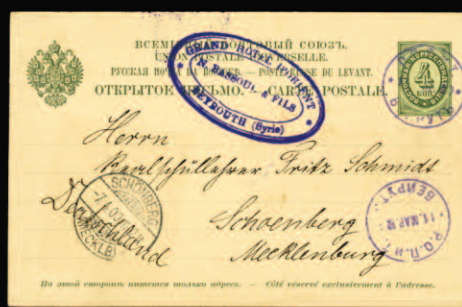 ВСЕМІРНЫЙ ПОЧТОВЫЙ СОЮЗЪ.
UNION POSTALE UNIVERSELLE.
РУССКАЯ ПОЧТА НА ВОСТОКѢ. — POSTE RUSSE DU LEVANT.
ОТКРЫТОЕ ПИСЬМО. — CARTE POSTALE.
GRAND HOTEL D'ORIENT
N. BASSOUL & FILS
BEYROUTH (Syrie)
4
КОП.
Herrn
Realschullehrer Fritz Schmidt
Schoenberg
Mecklenburg
Deutschland
SCHÖNBERG
(MECKLB)
Р.О.П.и Т.
БЕЙРУТ
На этой сторонѣ пишется только адресъ. — Côté réservé exclusivement à l'adresse.